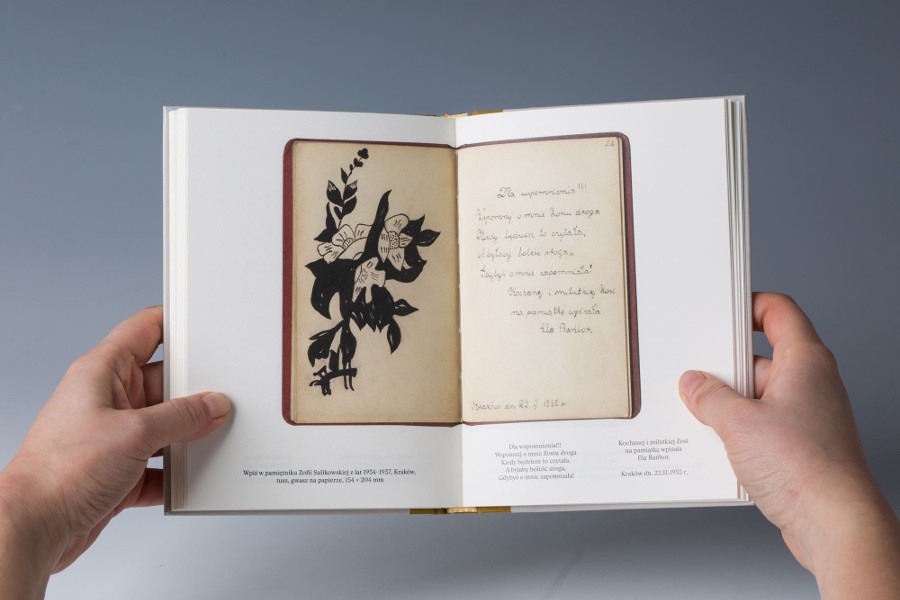 Wpis w pamiętniku Zofii Sulikowskiej z lat 1934–1937, Kraków,
tusz, gwasz na papierze, 154 × 204 mm
24
Dla wspomnienia!!!
Wspomnij o mnie Zosiu droga
Kiedy będziesz to czytała,
A byłaby boleść sroga,
Gdybyś o mnie zapomniała!
Kochanej i milutkiej Zosi
na pamiątkę wpisała
Ela Bańbor.
Kraków dn. 22. II 1935 r.
Dla wspomnienia!!!
Wspomnij o mnie Zosiu droga
Kiedy będziesz to czytała,
A byłaby boleść sroga,
Gdybyś o mnie zapomniała!
Kochanej i milutkiej Zosi
na pamiątkę wpisała
Ela Bańbor.
Kraków dn. 22.II.1935 r.